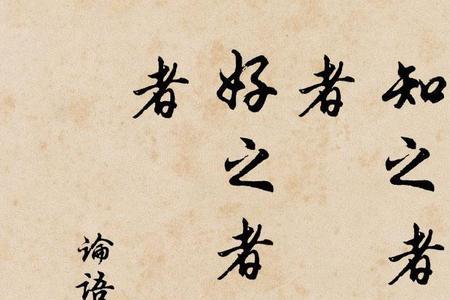 知之者
者
好之者
者
论语